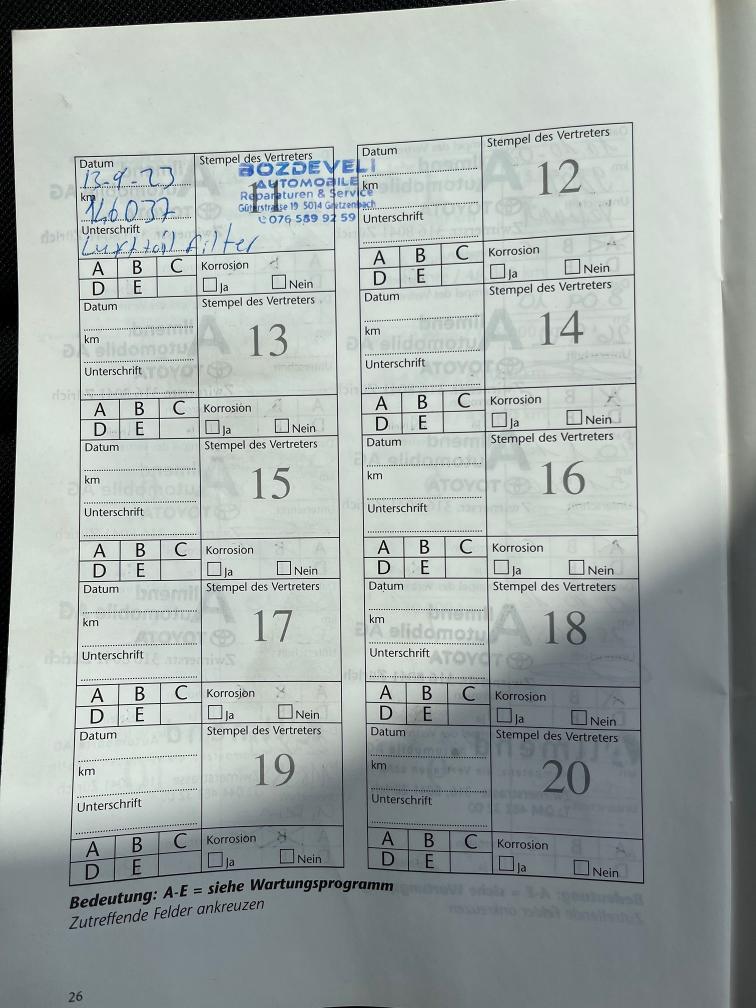 Datum
13-9-23
km
146037
Unterschrift
Luft öil filter
Stempel des Vertreters
11
BOZDEVELI
AUTOMOBILE
Reparaturen & Service
Güterstrasse 19 5014 Gretzenbach
076 589 92 59
A B C
D E
Korrosion
Ja Nein
Datum
km
Unterschrift
Stempel des Vertreters
12
A B C
D E
Korrosion
Ja Nein
Datum
km
Unterschrift
Stempel des Vertreters
13
A B C
D E
Korrosion
Ja Nein
Datum
km
Unterschrift
Stempel des Vertreters
14
A B C
D E
Korrosion
Ja Nein
Datum
km
Unterschrift
Stempel des Vertreters
15
A B C
D E
Korrosion
Ja Nein
Datum
km
Unterschrift
Stempel des Vertreters
16
A B C
D E
Korrosion
Ja Nein
Datum
km
Unterschrift
Stempel des Vertreters
17
A B C
D E
Korrosion
Ja Nein
Datum
km
Unterschrift
Stempel des Vertreters
18
A B C
D E
Korrosion
Ja Nein
Datum
km
Unterschrift
Stempel des Vertreters
19
A B C
D E
Korrosion
Ja Nein
Datum
km
Unterschrift
Stempel des Vertreters
20
A B C
D E
Korrosion
Ja Nein
Bedeutung: A-E = siehe Wartungsprogramm
Zutreffende Felder ankreuzen
26